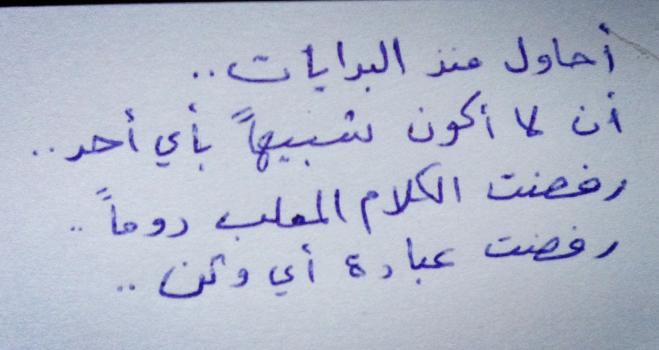 أحاول منذ البدايات..
أن لا أكون شبيهاً بأي أحد..
رفضت الكلام المعلب دوماً..
رفضت عبادة أي وثن..